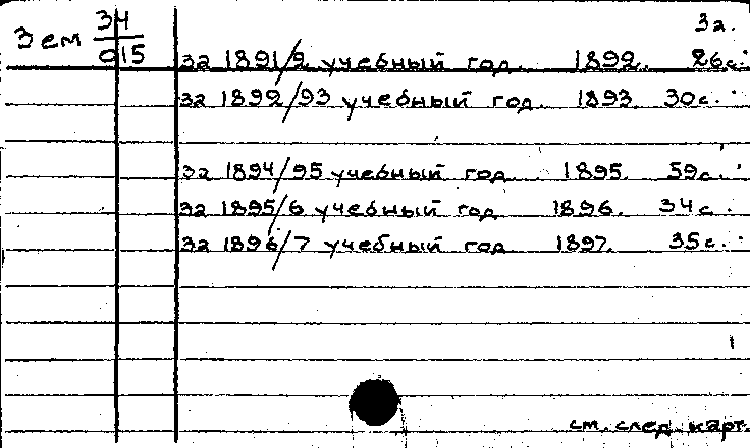 3а.
Зем 34
015
за 1891/2 учебный год. 1892. 26с.
за 1892/93 учебный год. 1893. 30с.
за 1894/95 учебный год. 1895. 59с.
за 1895/6 учебный год 1896. 34с.
за 1896/7 учебный год 1897. 35с.
см. след. карт.